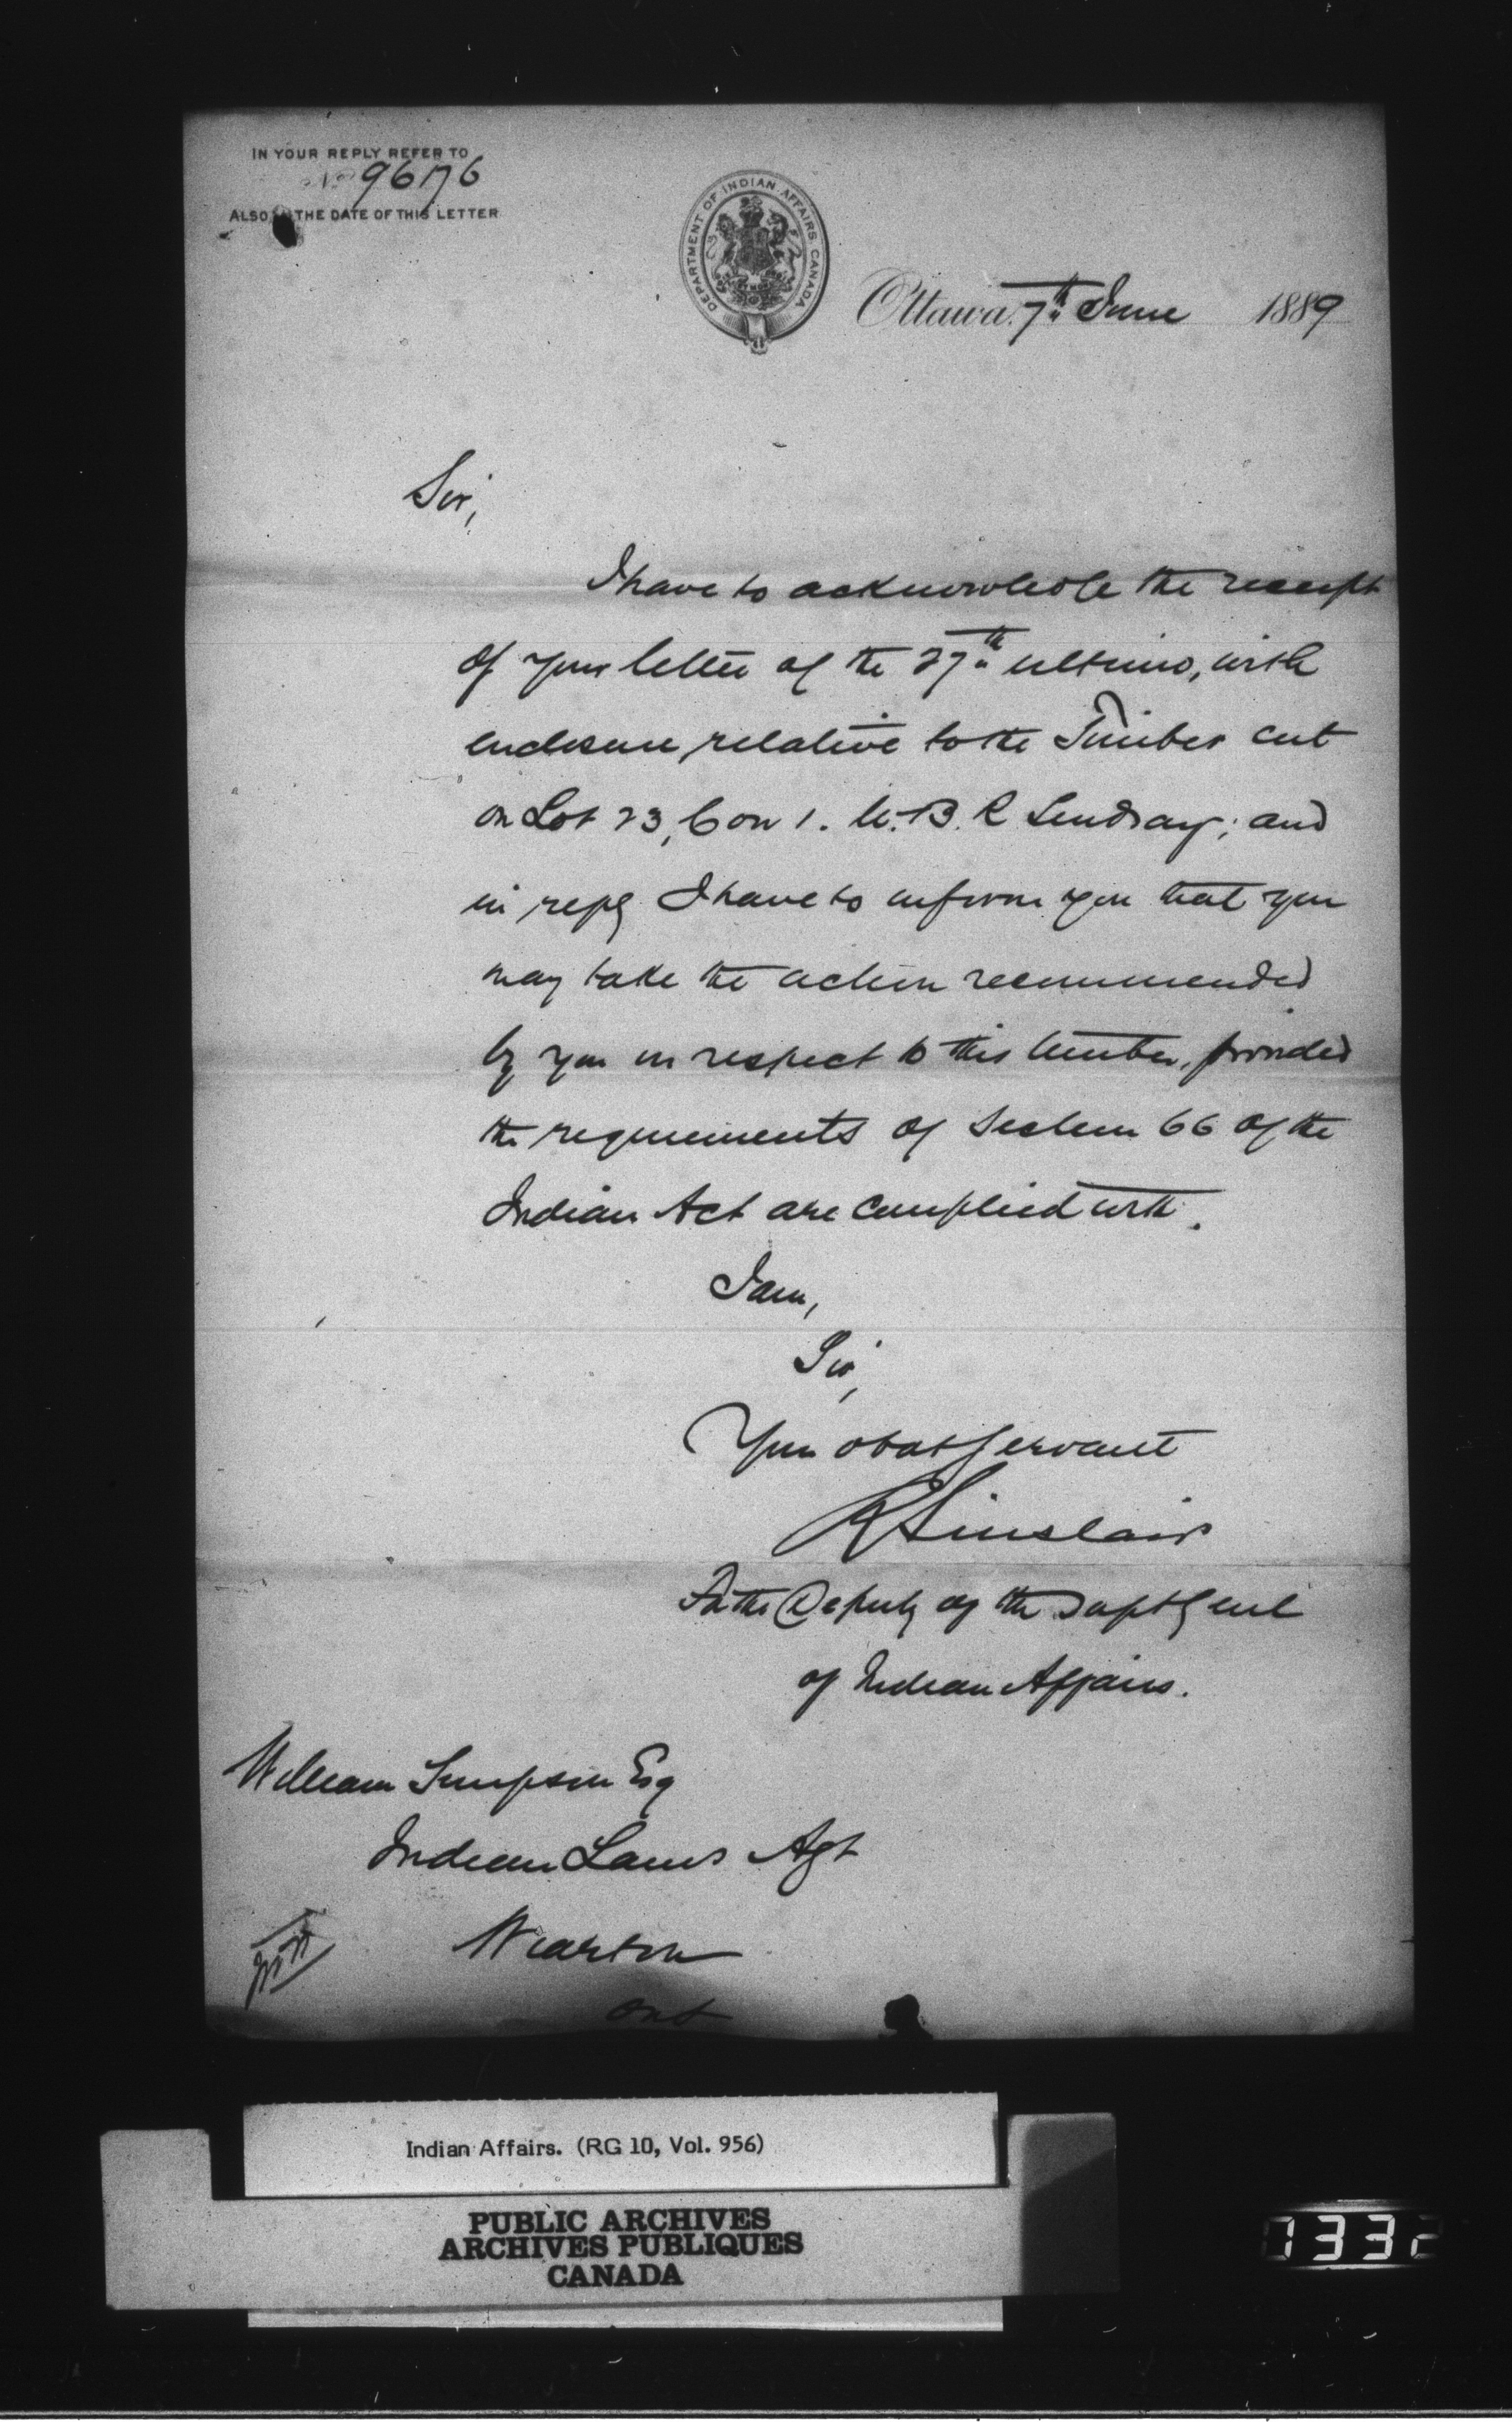 IN YOUR REPLY REFER TO
No 96176
ALSO TO THE DATE OF THIS LETTER
DEPARTMENT OF INDIAN AFFAIRS CANADA
Ottawa. 7th June 1889
Sir,
I have to acknowledge the receipt
of your letter of the 27th ultimo, with
enclosure, relative to the Timber cut
on Lot 23, Con 1. W. B. R Lindsay; and
in reply I have to inform you that you
may take the action recommended
by you in respect to this timber, provided
the requirements of Section 66 of the
Indian Act are complied with.
I am,
Sir,
Your obdt servant
R Sinclair
For the Deputy of the Supt Genl
of Indian Affairs.
William Simpson Esq
Indian Lands Agt
Wiarton
Ont
Indian Affairs. (RG 10, Vol. 956)
PUBLIC ARCHIVES
ARCHIVES PUBLIQUES
CANADA
1332